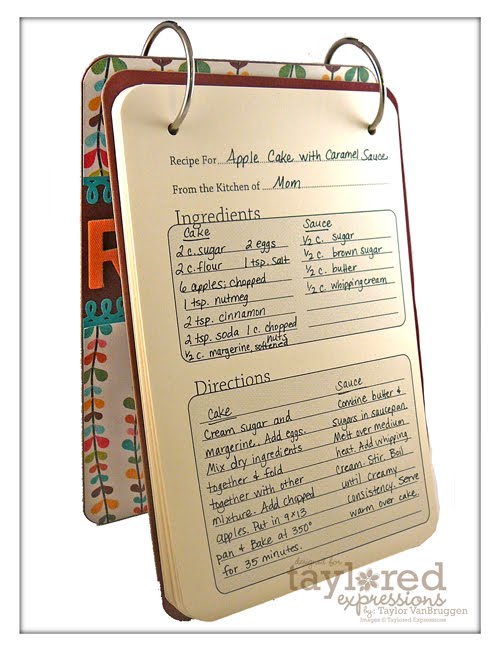 R
Recipe For Apple Cake with Caramel Sauce
From the Kitchen of Mom
Ingredients
Cake
2 c. sugar 2 eggs
2 c. flour 1 tsp. salt
6 apples, chopped
1 tsp. nutmeg
2 tsp. cinnamon
2 tsp. soda 1 c. chopped nuts
1/2 c. margerine, softened
Sauce
1/2 c. sugar
1/2 c. brown sugar
1/2 c. butter
1/2 c. whipping cream
Directions
Cake
Cream sugar and
margerine. Add eggs.
Mix dry ingredients
together & fold
together with other
mixture. Add chopped
apples. Put in 9x13
pan & Bake at 350°
for 35 minutes.
Sauce
Combine butter &
sugars in saucepan
Melt over medium
heat. Add whipping
Cream. Stir. Boil
until creamy
consistency. Serve
warm over cake.
designed for
taylored
expressions
by: Taylor VanBruggen
Images © Taylored Expressions